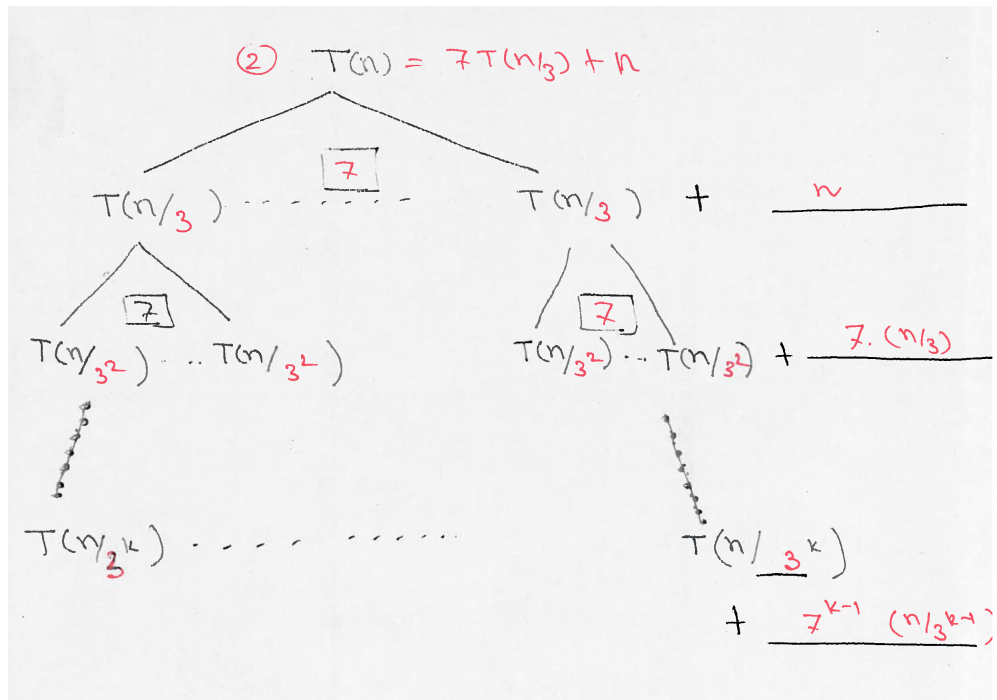 ② T(n) = 7T(n/3) + n
7
T(n/3) ....... T(n/3) + n
7 7
T(n/3²) ... T(n/3²) T(n/3²) ... T(n/3²) + 7. (n/3)
T(n/3ᵏ) .... ...... T(n/3ᵏ)
+ 7ᵏ⁻¹ (n/3ᵏ⁻¹)